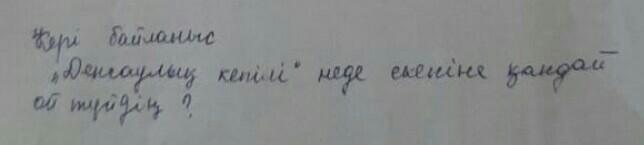 Кері байланыс
„Денсаулық кепілі" неде екеніне қандай
ой түйдің ?